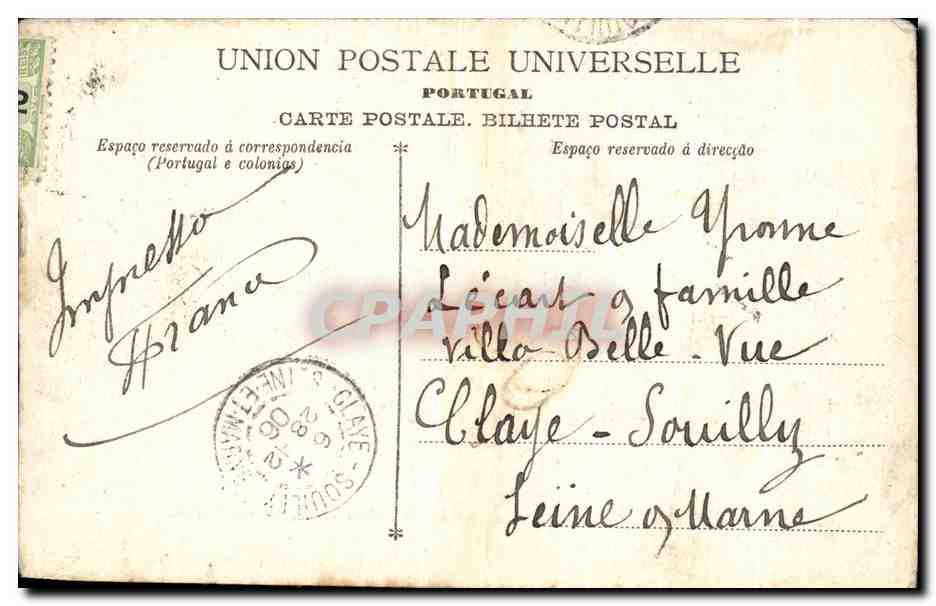 UNION POSTALE UNIVERSELLE
PORTUGAL
CARTE POSTALE. BILHETE POSTAL
Espaço reservado á correspondencia
(Portugal e colonias)
Espaço reservado á direcção
Impresso
França
Mademoiselle Yvonne
Lécart & famille
Villa Belle-Vue
Claye-Souilly
Seine & Marne
CLAYE-SOUILLY
SEINE-ET-MARNE
6
28 -2
06
CPAPHIL